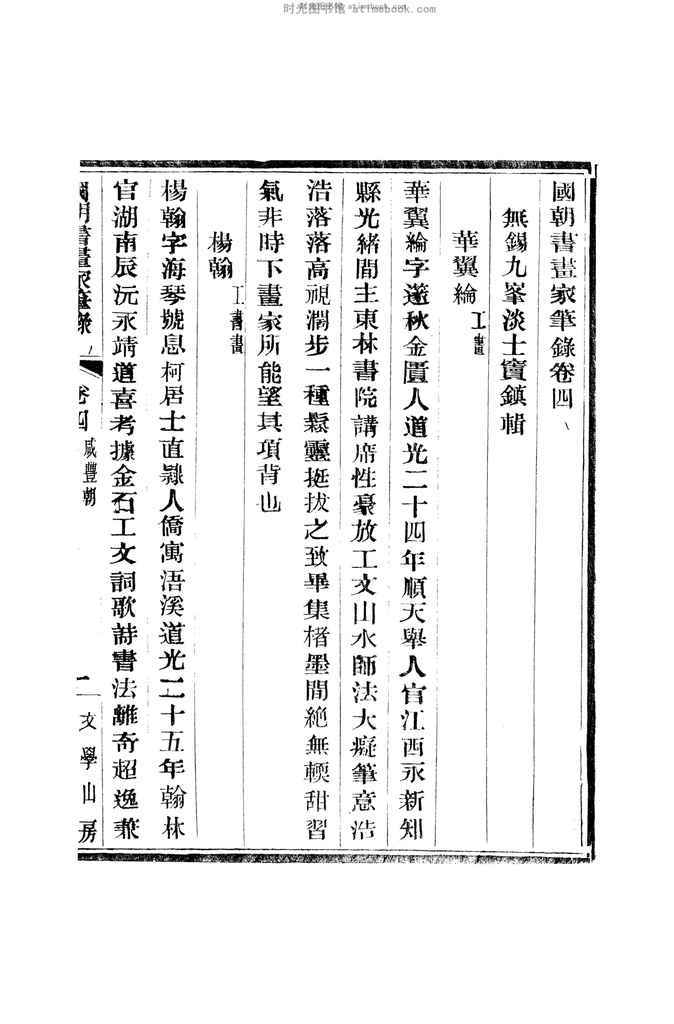 时光图书馆 atimebook.com
國朝書畫家筆錄卷四
無錫九峯淡士竇鎮輯
華翼綸 工畫
華翼綸字邃秋金匱人道光二十四年順天舉人官江西永新知
縣光緒間主東林書院講席性豪放工文山水師法大癡筆意浩
浩落落高視濶步一種鬆靈挺拔之致畢集楮墨間絕無輭甜習
氣非時下畫家所能望其項背也
楊翰 工書畫
楊翰字海琴號息柯居士直隸人僑寓浯溪道光二十五年翰林
官湖南辰沅永靖道喜考據金石工文詞歌詩書法離奇超逸兼
國朝書畫家筆錄 卷四 咸豐朝 一 文學山房